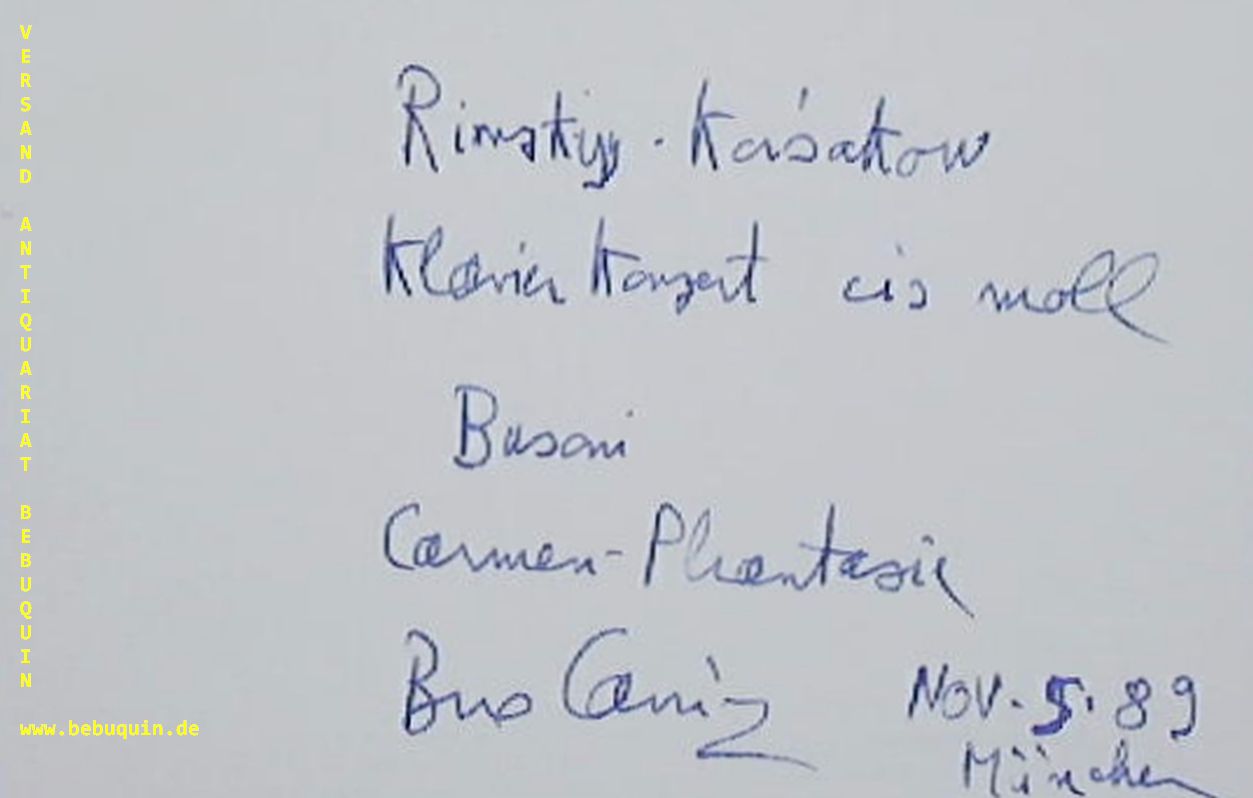 VERSAND ANTIQUARIAT BEBUQUIN
www.bebuquin.de
Rimskij-Korsakow
Klavier Konzert cis moll
Busoni
Carmen-Phantasie
Bruno Canino
Nov. 5. 89
München